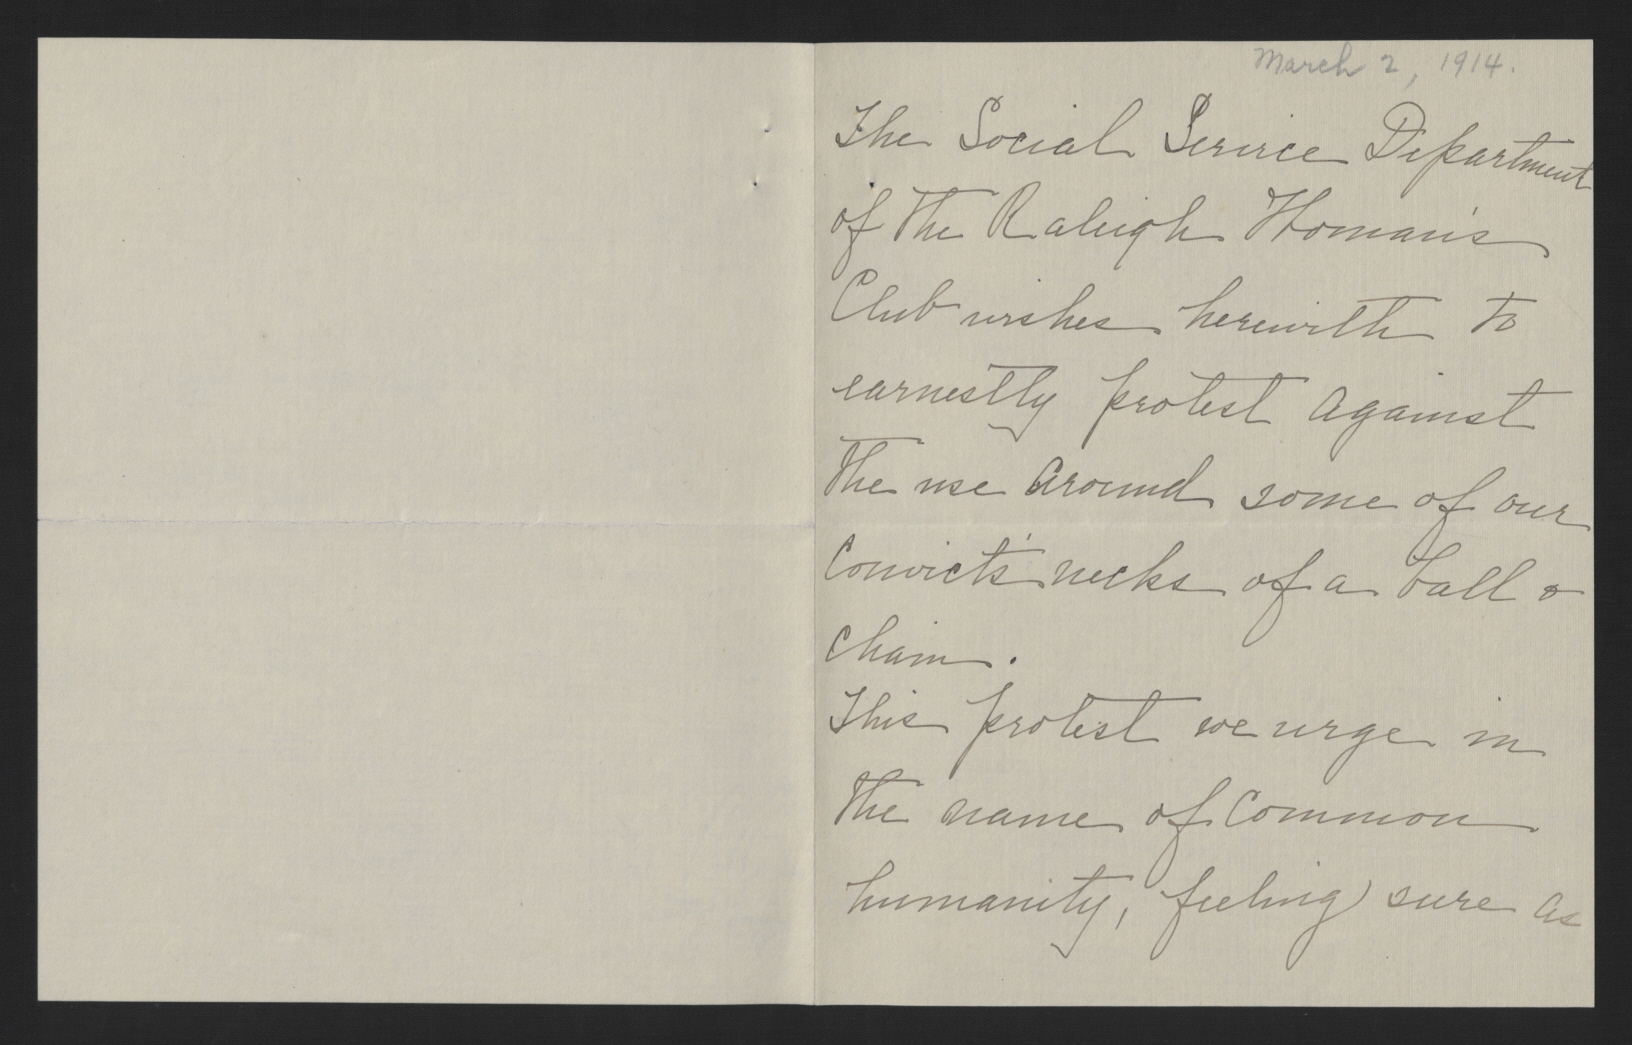 March 2, 1914.
The Social Service Department
of the Raleigh Woman's
Club wishes herewith to
earnestly protest against
the use around some of our
Convict's necks of a ball &
chain.
This protest we urge in
the name of Common
humanity, feeling sure as